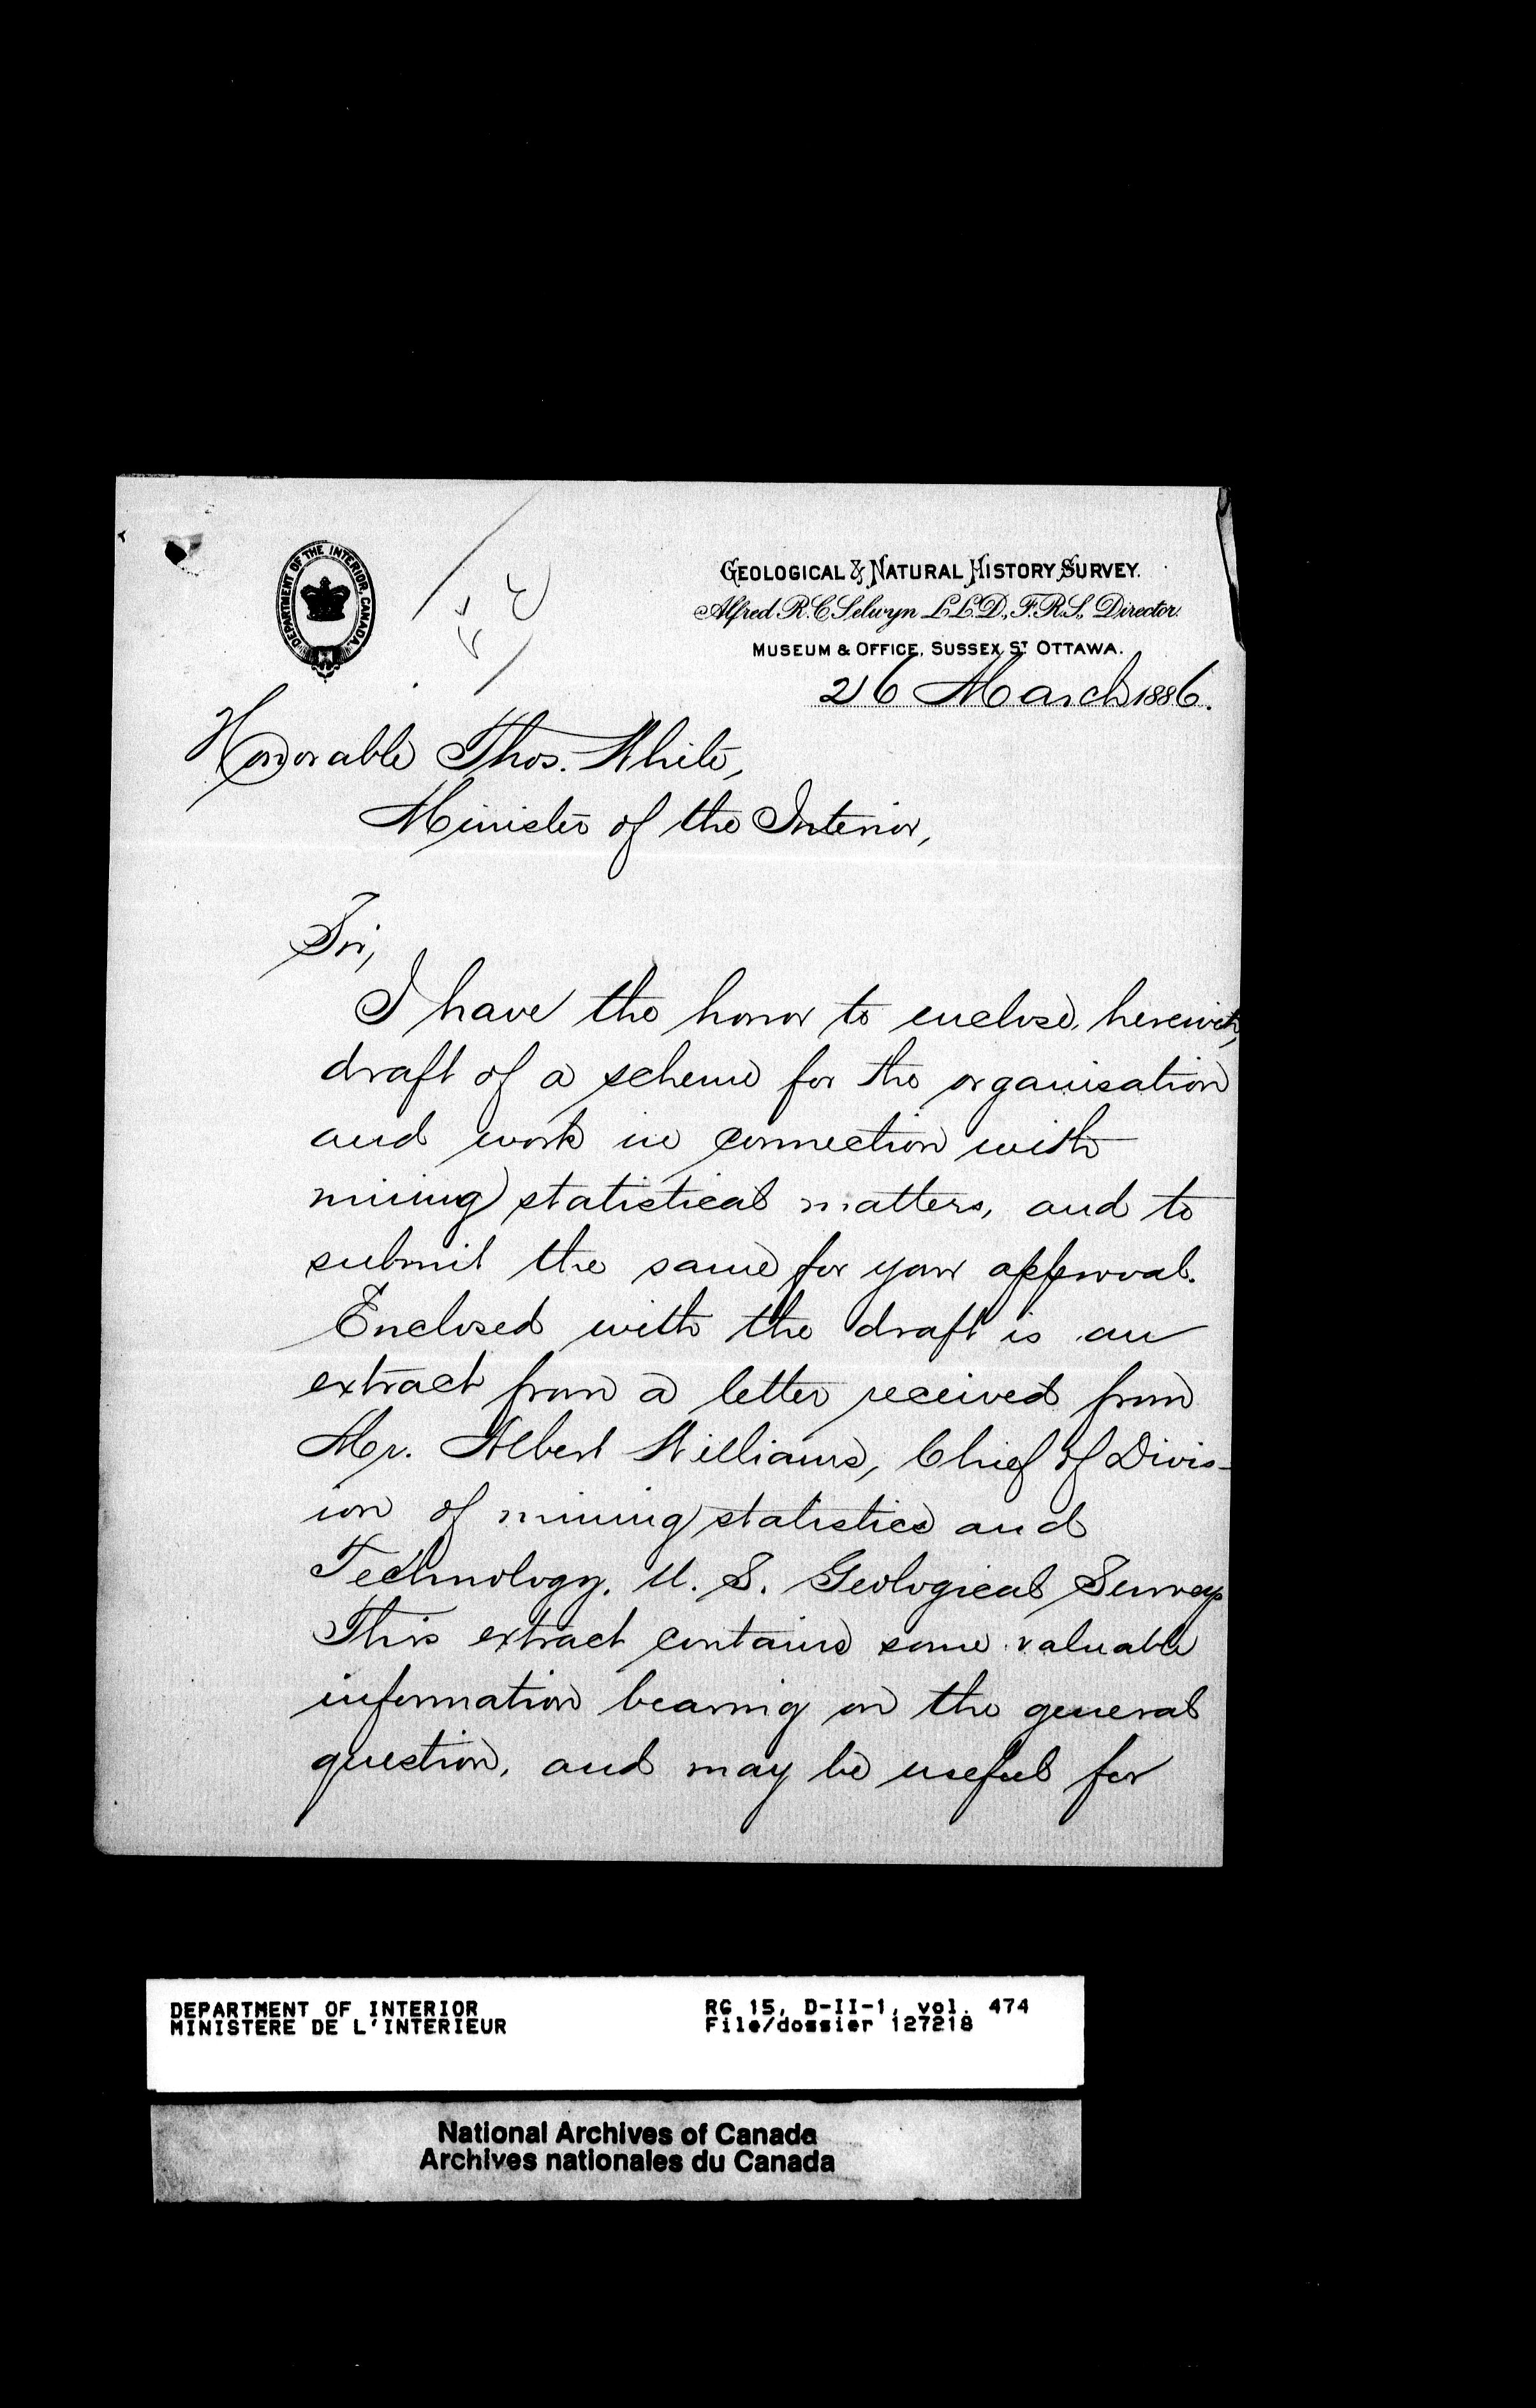 DEPARTMENT OF THE INTERIOR, CANADA.
GEOLOGICAL & NATURAL HISTORY SURVEY.
Alfred R. C. Selwyn LL.D., F.R.S., Director.
MUSEUM & OFFICE, SUSSEX ST OTTAWA.
26 March 1886.
Honorable Thos. White,
Minister of the Interior,
Sir,
I have the honor to enclose, herewith,
draft of a scheme for the organisation
and work in connection with
mining statistical matters, and to
submit the same for your approval.
Enclosed with the draft is an
extract from a letter received from
Mr. Albert Williams, Chief of Divis-
ion of mining statistics and
Technology, U. S. Geological Survey
This extract contains some valuable
information bearing on the general
question, and may be useful for
DEPARTMENT OF INTERIOR
MINISTERE DE L'INTERIEUR
RG 15, D-II-1, vol. 474
File/dossier 127218
National Archives of Canada
Archives nationales du Canada